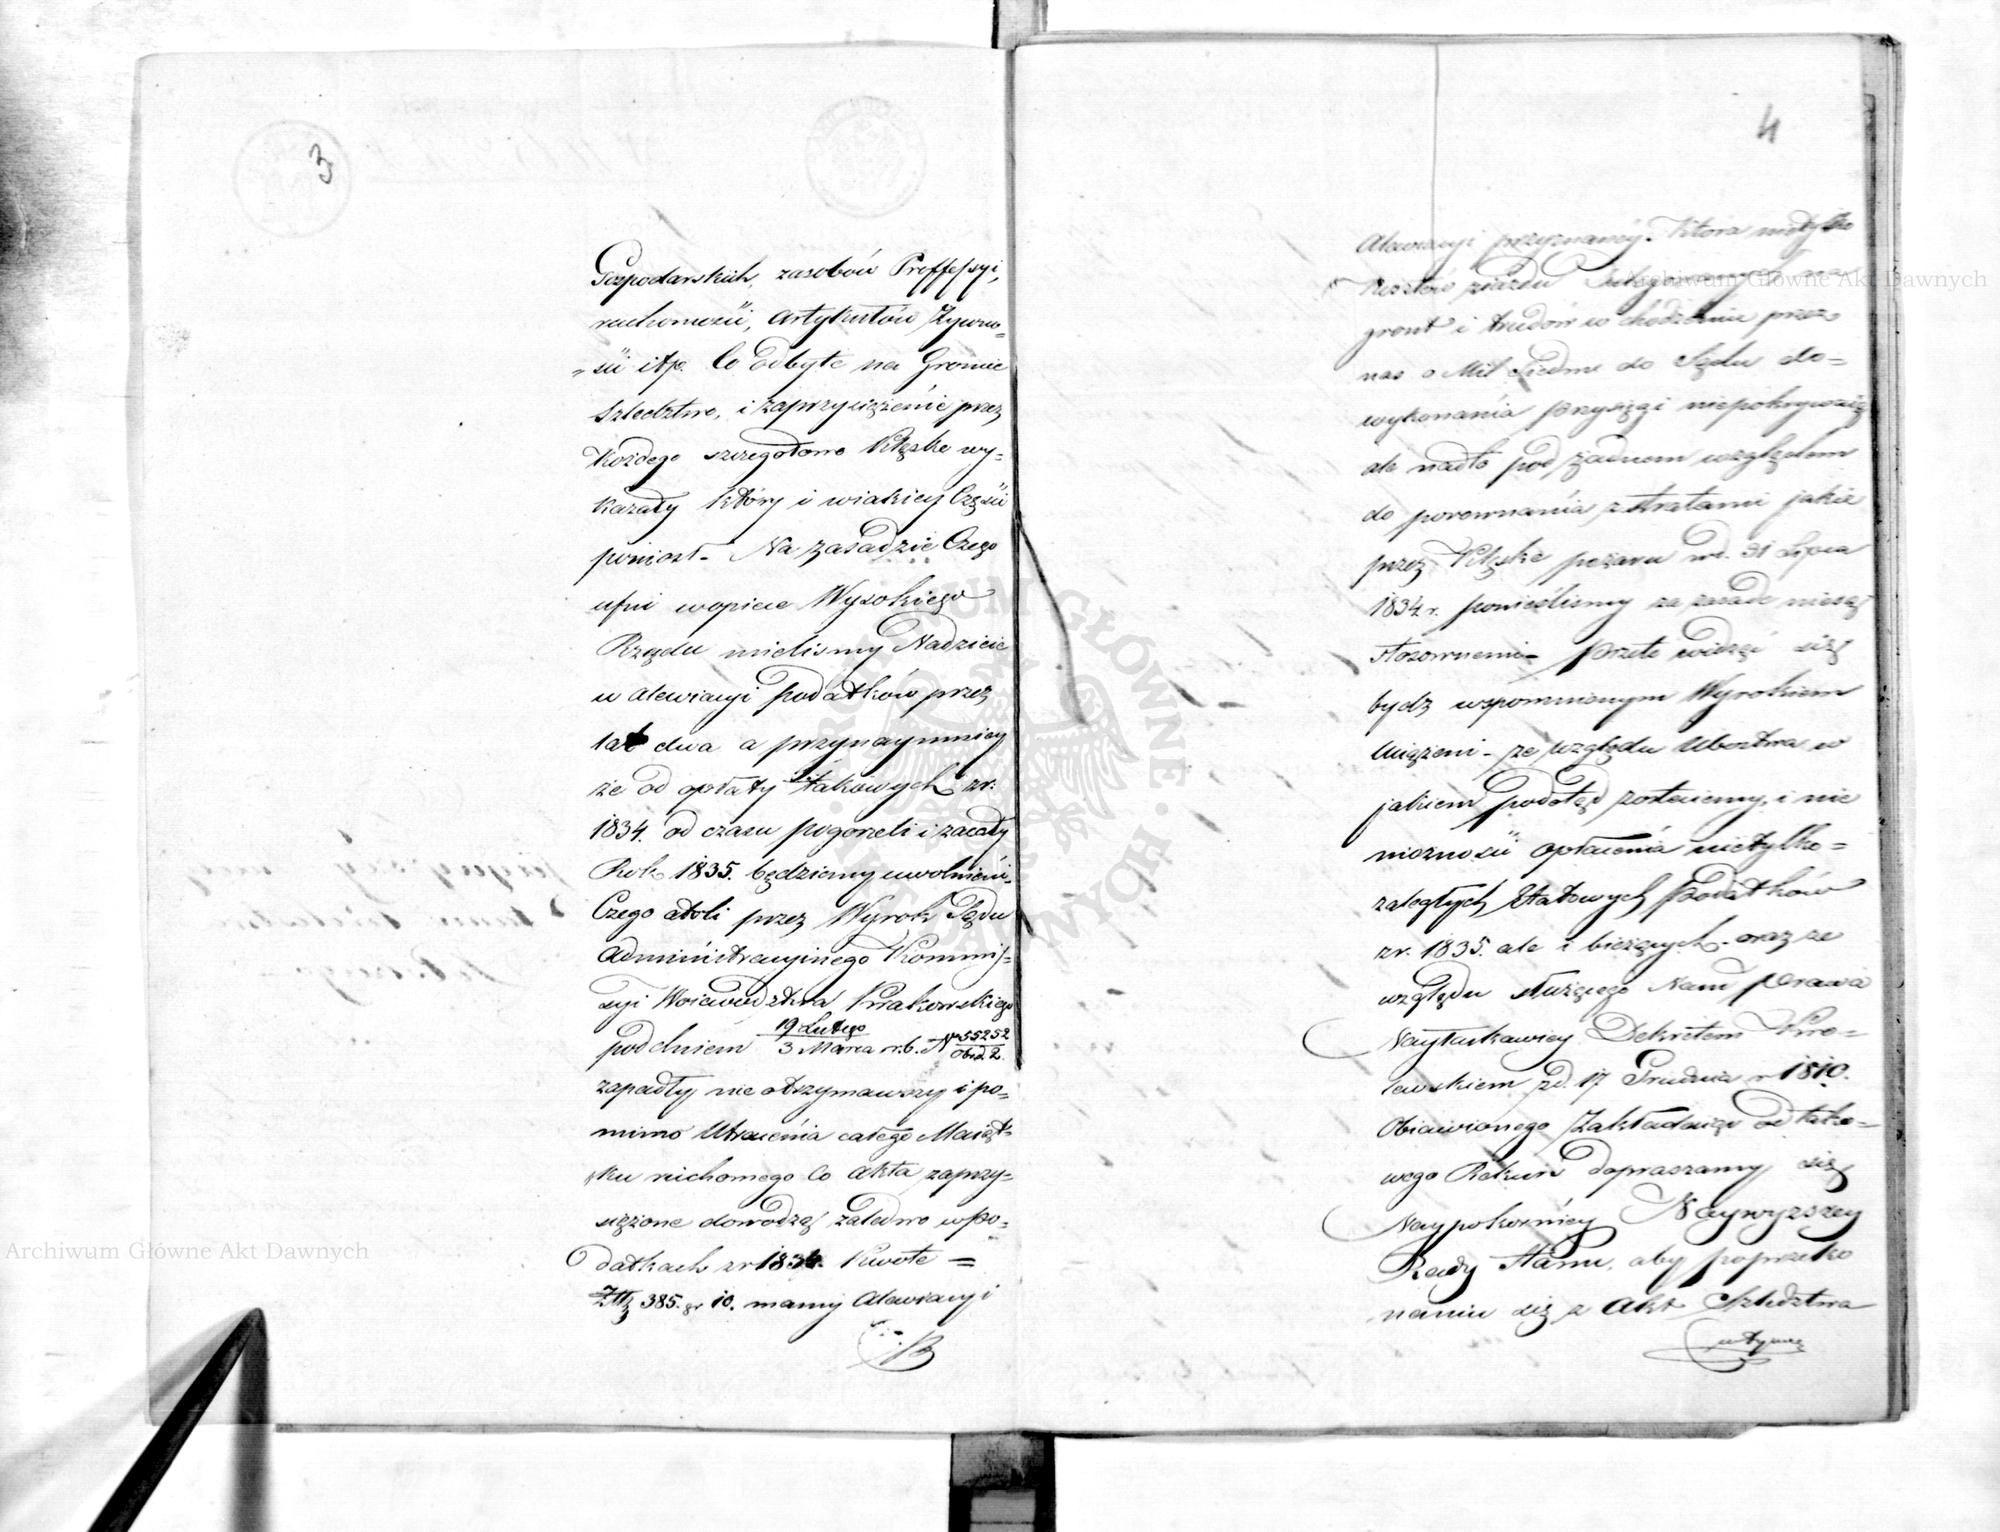 3
Gospodarskich, zasobów Proffessyi,
ruchomości, artykułów Żywno=
„ści itp. Co odbyte na Gruncie
Szledztwo, i zaprzysiężenie przez
Każdego szczegółowo Klęskę wy=
kazały który i wiakiey Części
poniosł – Na zasadzie Czego
ufni wopiece Wysokiego
Rządu mielismy Nadzieie
u alewiacyi podatków przez
lat dwa a przynaymniey
że od opłaty takowych zr.
1834. od czasu pogorzeli i zacały
Rok 1835. będziemy uwolnieni
Czego atoli przez Wyrok Sądu
Administracyinego Kommis=
syi Woiewództwa Krakowskiego
pod dniem 19 Lutego / 3 Marca r. b. No 55252
zapadły nie otrzymawszy i po=
mimo Utracenia całego Maiąt=
ku ruchomego Co akta zaprzy=
siężone dowodzą zaledwo w po=
datkach zr 1834. Kwote =
Złtp 385. gr 10. mamy Alewiacyi
4
Alewiacyi przyznaney. Która nietylko
Kosztów ziazdu Delegowanych na
grunt i trudów w chodzeniu przez
nas o Mil Siedm do Sądu do=
wykonania przysięgi niepokrywaią
ale nadto pod żadnem względem
do porownania z stratami jakie
przez Klęskę pożaru w d. 31 Lipca
1834 r. ponieślismy za zasade niesą
Stosownemi – przeto widząc się
bydz wspomnionym Wyrokiem
Uciążeni – ze względu Ubóstwa w
jakiem podotąd zostaiemy, i nie
możności opłacenia nietylko=
zaległych Statowych podatków
zr. 1835. ale i bieżących – oraz ze
względu służącego Nam prawa
Nayłaskawiey Dekretem Kró=
lewskiem z d. 17 Grudnia r 1810.
Obiawionego Zakładaiąc od tako=
wego Rekurs dopraszamy się
Naypokorniey Naywyższey
Rady Stanu, aby po przeko
naniu się z Akt Szledztwa